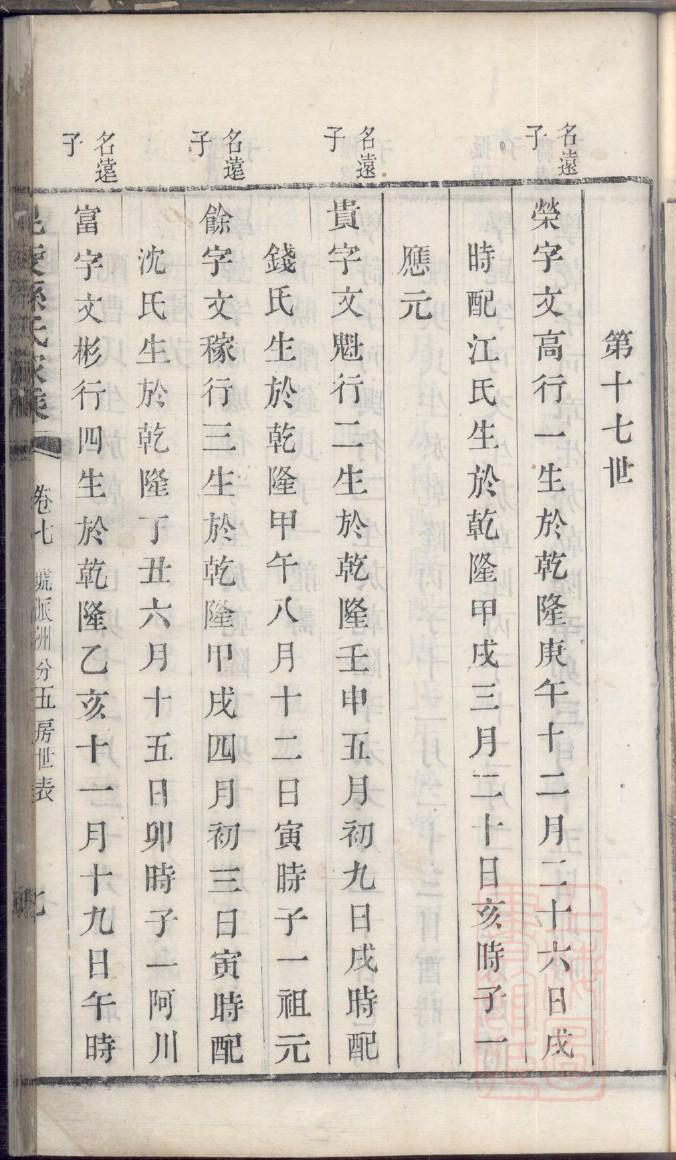 第十七世
名遠
子
榮字文高行一生於乾隆庚午十二月二十六日戌
時配江氏生於乾隆甲戌三月二十日亥時子一
應元
名遠
子
貴字文魁行二生於乾隆壬申五月初九日戌時配
錢氏生於乾隆甲午八月十二日寅時子一祖元
名遠
子
餘字文稼行三生於乾隆甲戌四月初三日寅時配
沈氏生於乾隆丁丑六月十五日卯時子一阿川
名遠
子
富字文彬行四生於乾隆乙亥十一月十九日午時
孫氏家乘
卷七
洲分五房世表
七